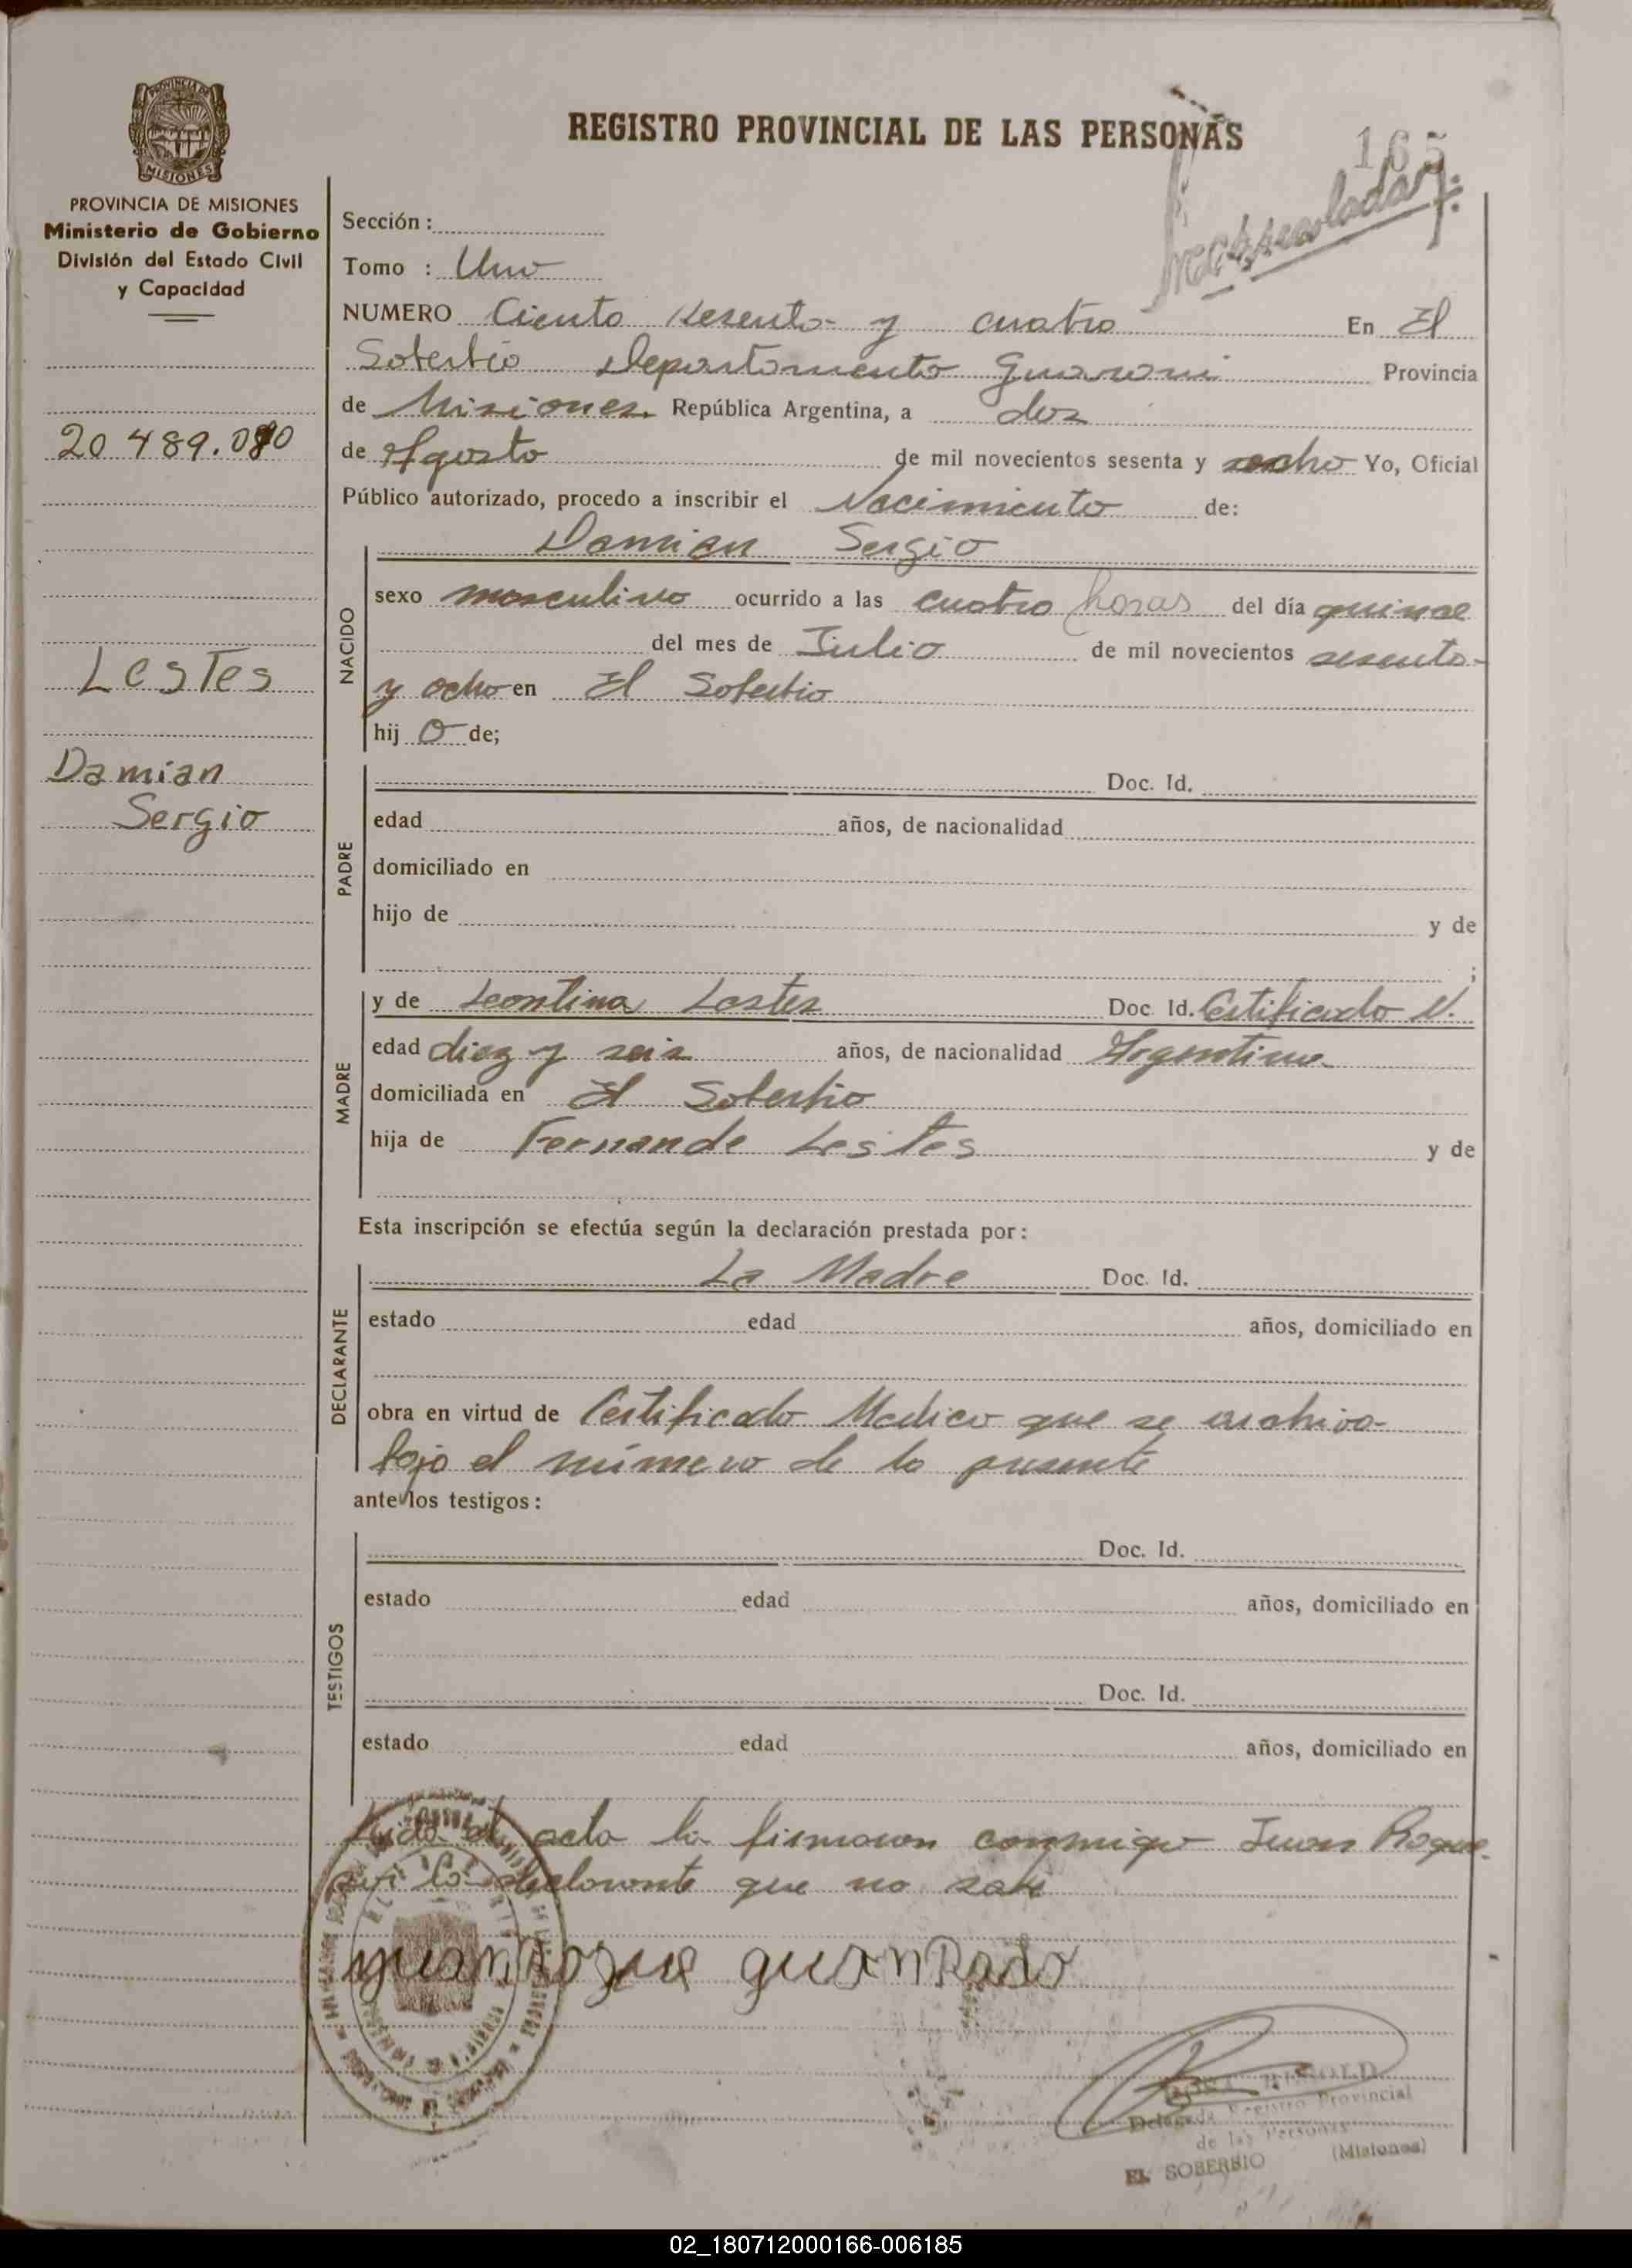 PROVINCIA DE MISIONES
REGISTRO PROVINCIAL DE LAS PERSONAS
165
PROVINCIA DE MISIONES
Ministerio de Gobierno
División del Estado Civil
y Capacidad
20.489.080
Lestes
Damian
Sergio
Sección :
Tomo : Uno
NUMERO Ciento Sesenta y cuatro En El
Soberbio Departamento Guarani Provincia
de Misiones República Argentina, a dos
de Agosto de mil novecientos sesenta y ocho Yo, Oficial
Público autorizado, procedo a inscribir el Nacimiento de:
NACIDO
Damian Sergio
sexo masculino ocurrido a las cuatro horas del día quince
del mes de Julio de mil novecientos sesenta
y ocho en El Soberbio
hij o de;
PADRE
Doc. Id.
edad años, de nacionalidad
domiciliado en
hijo de y de
;
MADRE
y de Leontina Lestes Doc. Id. Certificado N.
edad diez y seis años, de nacionalidad Argentina
domiciliada en El Soberbio
hija de Fernande Lestes y de
Esta inscripción se efectúa según la declaración prestada por:
DECLARANTE
La Madre Doc. Id.
estado edad años, domiciliado en
obra en virtud de Certificado Medico que se archiva
bajo el número de la presente
ante los testigos:
TESTIGOS
Doc. Id.
estado edad años, domiciliado en
Doc. Id.
estado edad años, domiciliado en
acta la firmaron conmigo Juan Roque
por la declarante que no sabe
Delegada Registro Provincial
de las Personas
EL SOBERBIO (Misiones)
02_180712000166-006185